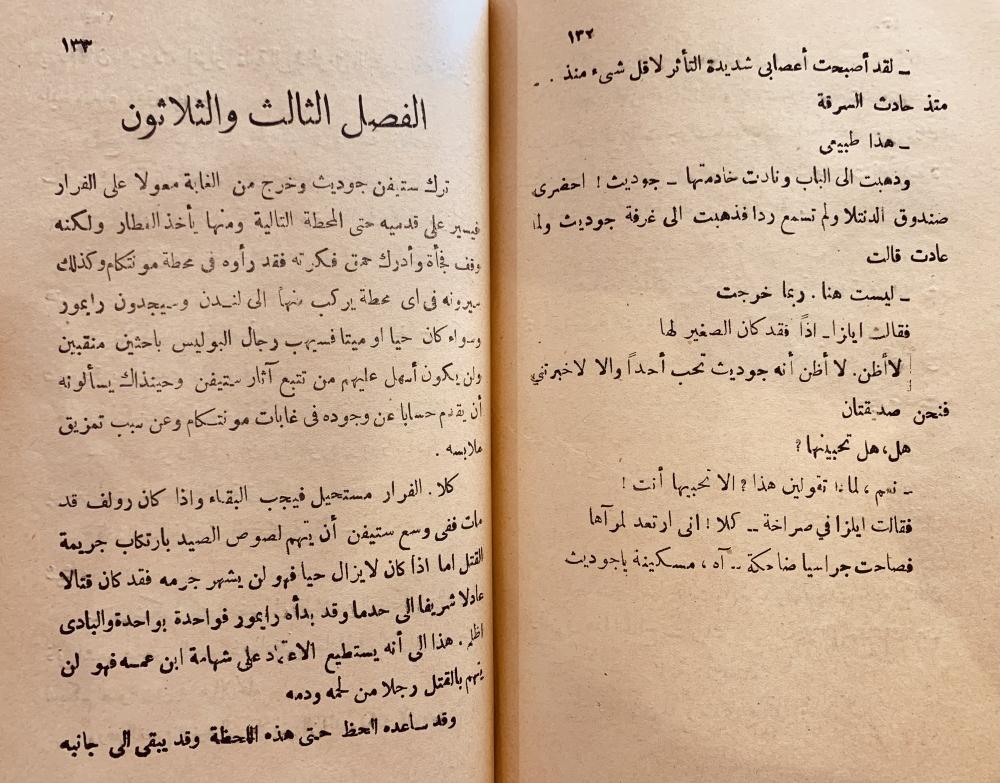 ١٣٢
ــ لقد أصبحت أعصابى شديدة التأثر لاقل شىء منذ . .
متذ حادث السرقة
ــ هذا طبيعى
وذهبت الى الباب ونادت خادمتها ــ جوديث ! احضرى
صندوق الدنتلا ولم تسمع ردا فذهبت الى غرفة جوديث ولما
عادت قالت
ــ ليست هنا . ربما خرجت
فقالت ايلزا ــ اذاً فقد كان الصغير لها
لاأظن. لا أظن أنه جوديث تحب أحداً والا لاخبرتنى
فنحن صديقتان
هل، هل تحبينها ؟
ــ نعم ، لماذا تقولين هذا ? الا تحبيها أنت !
فقالت ايلزا في صراخة ــ كلا ! انى ارتعد لمرآها
فصاحت جراسيا ضاحكة ــ آه ، مسكينة ياجوديث
١٣٣
الفصل الثالث والثلاثون
ترك ستيفن جوديث وخرج من الغابة معولا على الفرار
فيسير على قدميه حتى المحطة التالية ومنها يأخذ القطار ولكنه
وقف فجأة وأدرك حمق فكرته فقد رأوه فى محطة مونتكام وكذلك
سيرونه فى اى محطة يركب منها الى لندن وسيجدون رايمور
وسواء كان حيا او ميتا فسيهب رجال البوليس باحثين منقبين
ولن يكون أسهل عليهم من تتبع آثار ستيفن وحينذاك يسألونه
أن يقدم حسابا عن وجوده فى غابات مونتكام وعن سبب تمزيق
ملابسه .
كلا . الفرار مستحيل فيجب البقاء واذا كان رولف قد
مات ففى وسع ستيفن أن يتهم لصوص الصيد بارتكاب جريمة
القتل اما اذا كان لايزال حيا فهو لن يشهر جرمه فقد كان قتالا
عادلا شريفا الى حدما وقد بدأه رايمور فواحدة بواحدة والبادى
اظلم . هذا الى أنه يستطيع الاعتماد على شهامة ابن عمه فهو لن
يتهم بالقتل رجلا من لحمه ودمه
وقد ساعده الحظ حتى هذه اللحظة وقد يبقى الى جانبه